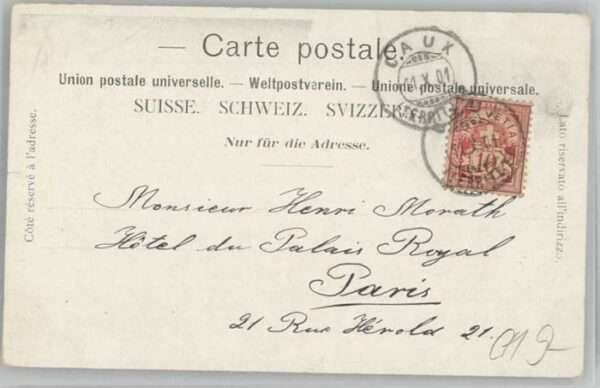 — Carte postale. —
Union postale universelle. — Weltpostverein. — Unione postale universale.
SUISSE. SCHWEIZ. SVIZZERA.
Nur für die Adresse.
Côté réservé à l'adresse.
Lato riservato all'indirizzo.
CAUX
11 X 01
HELVETIA
10
Monsieur Henri Morath
Hôtel du Palais Royal
Paris
21 Rue Hérold 21.